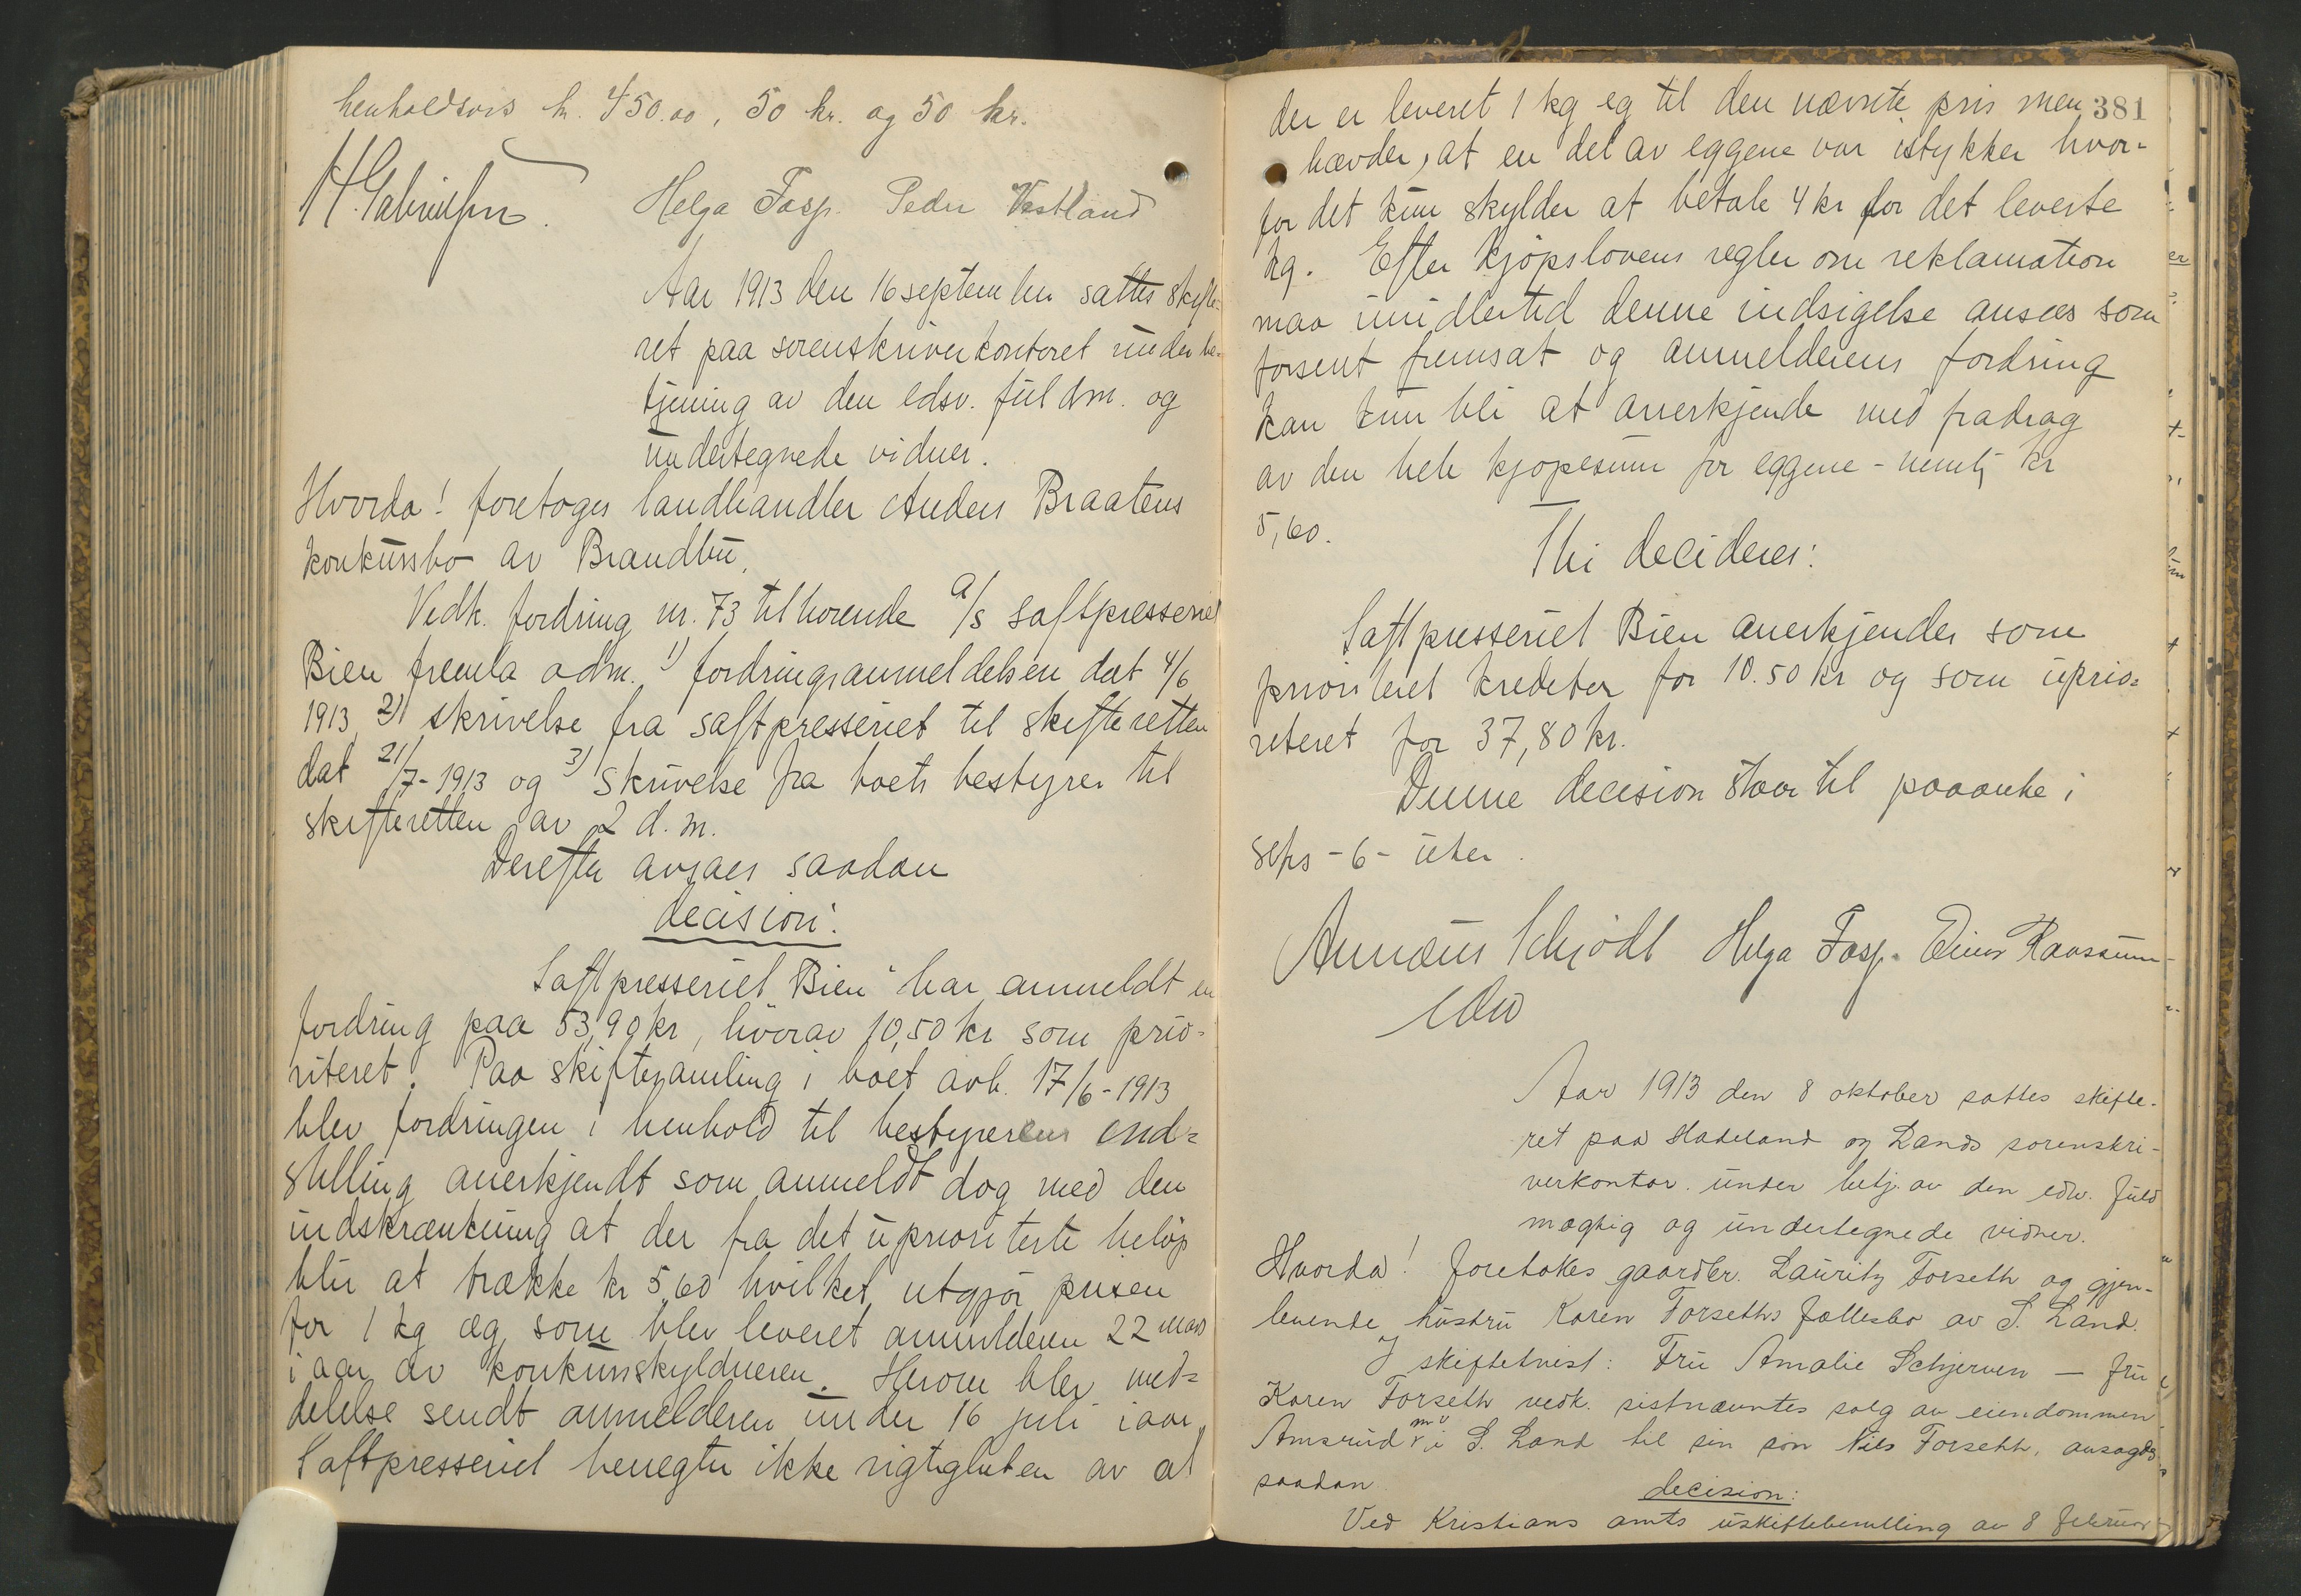 henholdsvis kr. 450.00, 50 kr. og 50 kr.
H. Gabrielsen. Helga Fasp. Peder Vestland
Aar 1913 den 16 september sattes skifte-
ret paa sorenskriverkontoret under be-
tjening av den edsv. fuldm. og
undertegnede vidner.
Hvorda! foretoges landhandler Anders Braatens
konkursbo av Brandbu.
Vedk. fordring nr. 73 tilhørende a/s Saftpresseriet
Bien fremla adm. 1) fordringsanmeldelsen dat 4/6
1913 2) skrivelse fra saftpresseriet til skifteretten
dat 21/7-1913 og 3) skrivelse fra boets bestyrer til
skifteretten av 2 d. m.
Derefter avsaes saadan
decision:
Saftpresseriet Bien" har anmeldt en
fordring paa 53,90 kr, hvorav 10,50 kr som prio-
riteret. Paa skiftesamling i boet avh. 17/6-1913
blev fordringen i henhold til bestyrerens ind-
stilling anerkjendt som anmeldt dog med den
indskrænkning at der fra det uprioriterte beløp
blir at trække kr 5,60 hvilket utgjør prisen
for 1 kg æg, som blev leveret anmelderen 22 mars
i aar av konkursskyldneren. Herom blev med-
delelse sendt anmelderen under 16 juli iaar,
Saftpresseriet benegter ikke rigtigheten av at
381
der er leveret 1 kg eg til den nævnte pris men
hævder, at en del av eggene var istykker hvor-
for det kun skylder at betale 4 kr for det leverte
kg. Efter kjøpslovens regler om reklamation
maa imidlertid denne indsigelse ansees som
forsent fremsat og anmelderens fordring
kan kun bli at anerkjende med fradrag
av den hele kjøpesum for eggene - nemlig kr
5,60.
Thi decideres:
Saftpresseriet Bien anerkjendes som
prioriteret kreditor for 10.50 kr og som uprio-
riteret for 37,80 kr.
Denne decision staar til paaanke i
seks - 6 - uker.
Annæus Schjødt Helga Fasp. Einar Raassum
edsv
Aar 1913 den 8 oktober sattes skifte-
ret paa Hadeland og Lands sorenskri-
verkontor under betj. av den edsv. fuld
mægtig og undertegnede vidner.
Hvorda! foretokes gaardbr. Lauritz Forseth og gjen-
levende hustru Karen Forseths fællesbo av S. Land.
I skiftetvist: Fru Amalie Schjerven — fru
Karen Forseth vedk. sistnævntes salg av eiendommen
Amsrud m v i S. Land til sin søn Nils Forseth, avsagdes
saadan
decision:
Ved Kristians amts uskiftebevilling av 8 februar